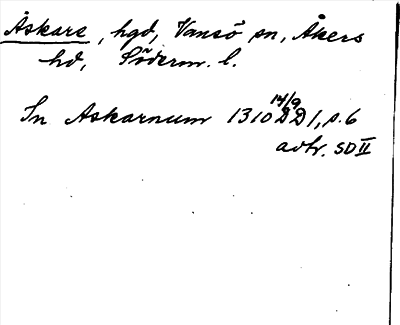 Åskare, hgd, Vansö sn, Åkers
hd, Söderm. l.
In Askarnum 1310 14/9 DD 1, s. 6
avtr. SD II